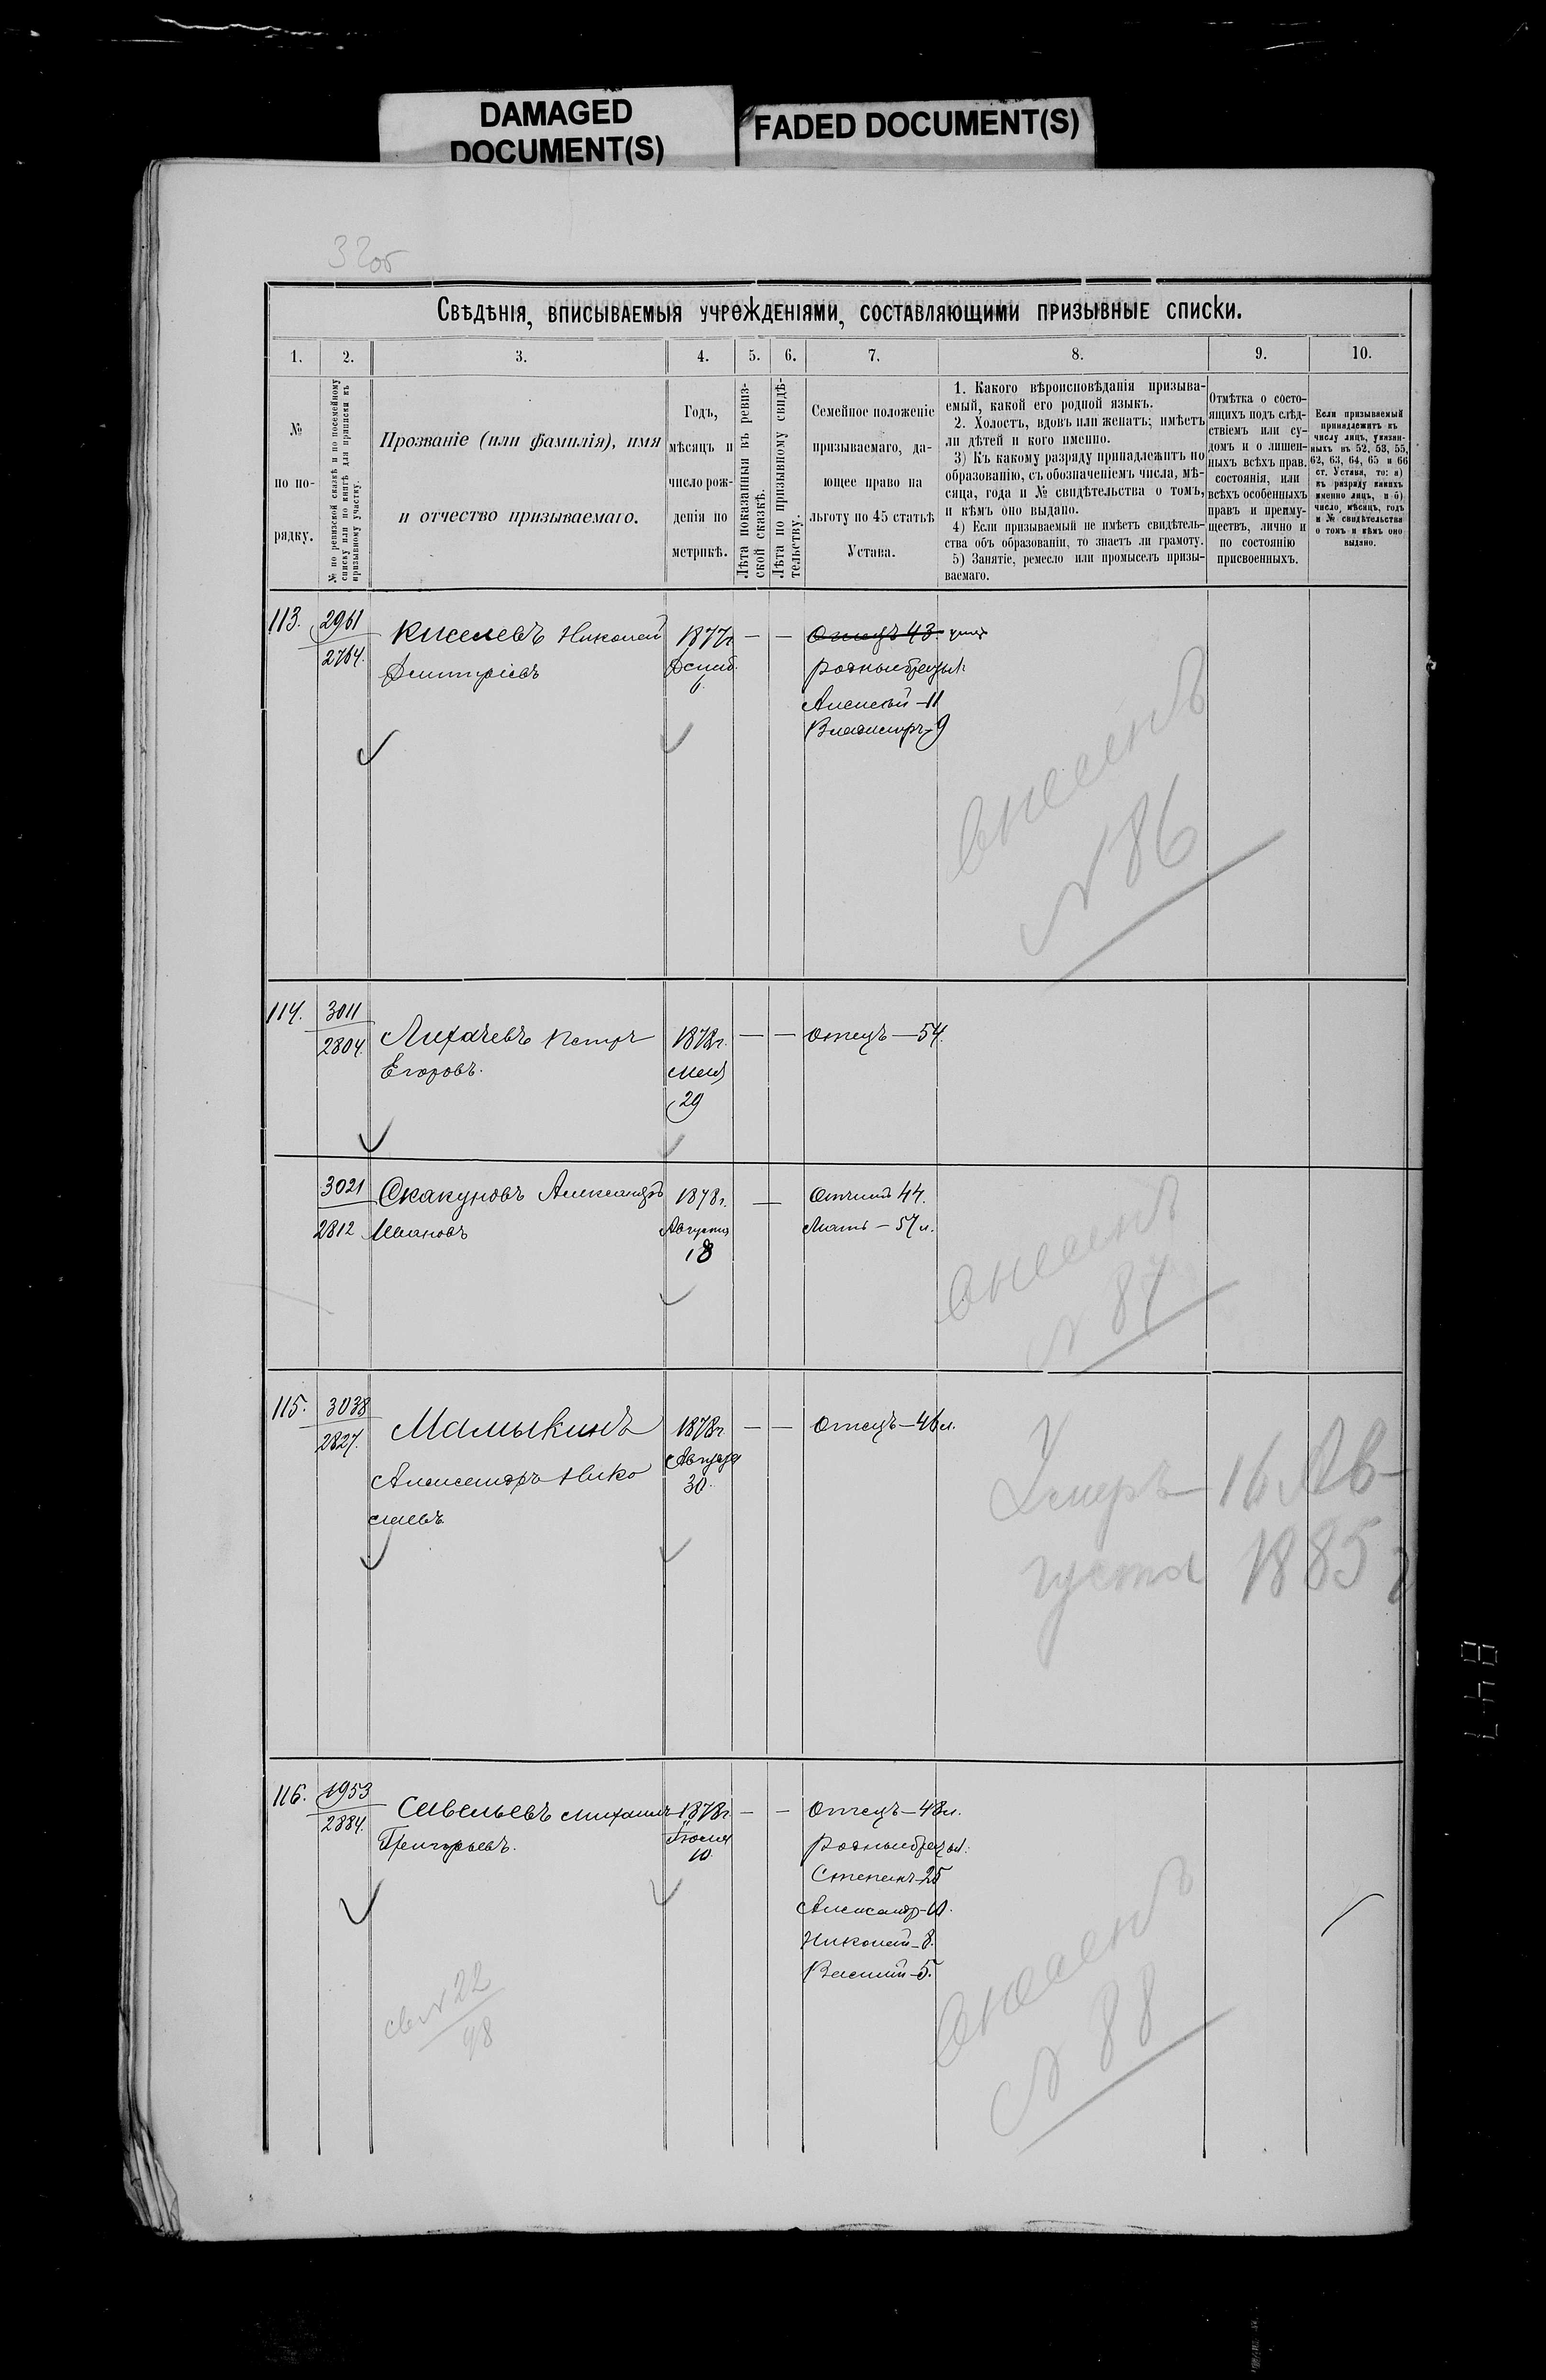 DAMAGED
DOCUMENT(S)
FADED DOCUMENT(S)
32об
Свѣдѣнія, вписываемыя учрежденіями, составляющими призывные списки.
1.
2.
3.
4.
5.
6.
7.
8.
9.
10.
№
по по-
рядку.
№ по ревизской сказкѣ и по посемейному
списку или по книгѣ для приписки къ
призывному участку.
Прозваніе (или фамилія), имя
и отчество призываемаго.
Годъ,
мѣсяцъ и
число рож-
денія по
метрикѣ.
Лѣта показанныя въ ревиз-
ской сказкѣ.
Лѣта по призывному свидѣ-
тельству.
Семейное положеніе
призываемаго, да-
ющее право на
льготу по 45 статьѣ
Устава.
1. Какого вѣроисповѣданія призыва-
емый, какой его родной языкъ.
2. Холостъ, вдовъ или женатъ; имѣетъ
ли дѣтей и кого именно.
3) Къ какому разряду принадлежитъ по
образованію, съ обозначеніемъ числа, мѣ-
сяца, года и № свидѣтельства о томъ,
и кѣмъ оно выдано.
4) Если призываемый не имѣетъ свидѣтель-
ства объ образованіи, то знаетъ ли грамоту.
5) Занятіе, ремесло или промыселъ призы-
ваемаго.
Отмѣтка о состо-
ящихъ подъ слѣд-
ствіемъ или су-
домъ и о лишен-
ныхъ всѣхъ прав.
состоянія, или
всѣхъ особенныхъ
правъ и преиму-
ществъ, лично и
по состоянію
присвоенныхъ.
Если призываемый
принадлежитъ къ
числу лицъ, указан-
ныхъ въ 52, 53, 55,
62, 63, 64, 65 и 66
ст. Устава, то: а)
къ разряду какихъ
именно лицъ, и б)
число, мѣсяцъ, годъ
и № свидѣтельства
о томъ и кѣмъ оно
выдано.
113.
2961
2764.
Киселевъ Николай
Дмитріевъ
1877г.
Декаб.
6.
— —
Отецъ 43.
родные братья:
Алексѣй — 11
Владиміръ — 9
внесенъ
№ 86
114.
3011
2804.
Лихачевъ Петръ
Егоровъ.
1878г.
Мая
29
— —
отецъ — 54.
3021
2812
Скакуновъ Александръ
Ивановъ
1878г.
Августа
18
—
Отчимъ 44.
Мать — 57 л.
внесенъ
№ 87
115.
3038
2827.
Малыкинъ
Александръ Нико
лаевъ
1878г
Августа
30.
— —
отецъ — 46 л.
Умеръ 16 Ав-
густа 1885 г
116.
1953
2884.
Савельевъ Михаилъ
Григорьевъ.
1878г.
Іюля
10.
— —
отецъ — 48 л.
родные братья:
Степанъ — 25
Александръ — 11.
Николай — 8.
Василій — 5.
св № 22
98
внесенъ
№ 88
847